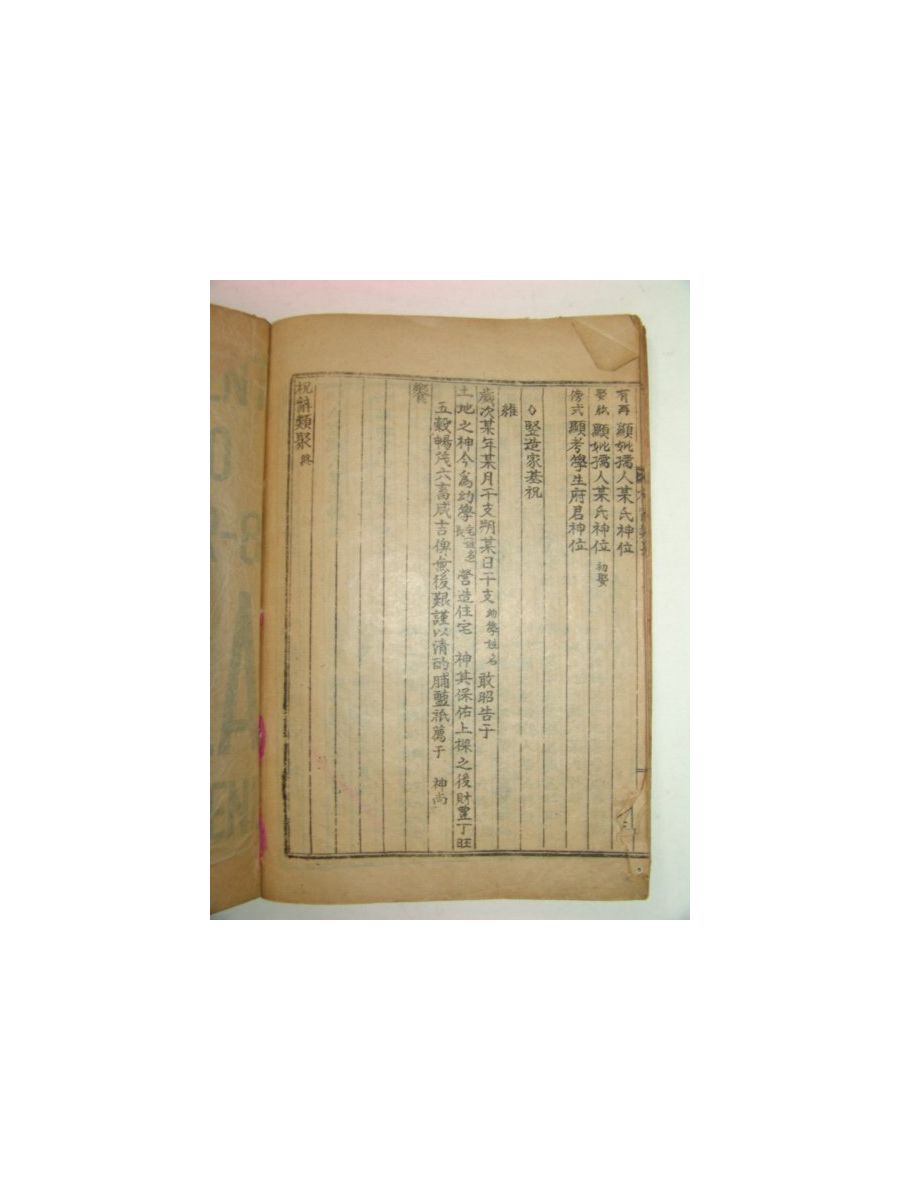 有再 顯妣孺人某氏神位
娶紙 顯妣孺人某氏神位 初娶
傍式 顯考學生府君神位
◇竪造家基祝
維
歲次某年某月干支朔某日干支 幼學姓名 敢昭告于
土地之神今爲幼學 宅長姓名 營造住宅 神其保佑上樑之後財豊丁旺
五穀暢茂六畜咸吉俾無後艱謹以淸酌脯醢祇薦于 神尚
饗
祝辭類聚 終